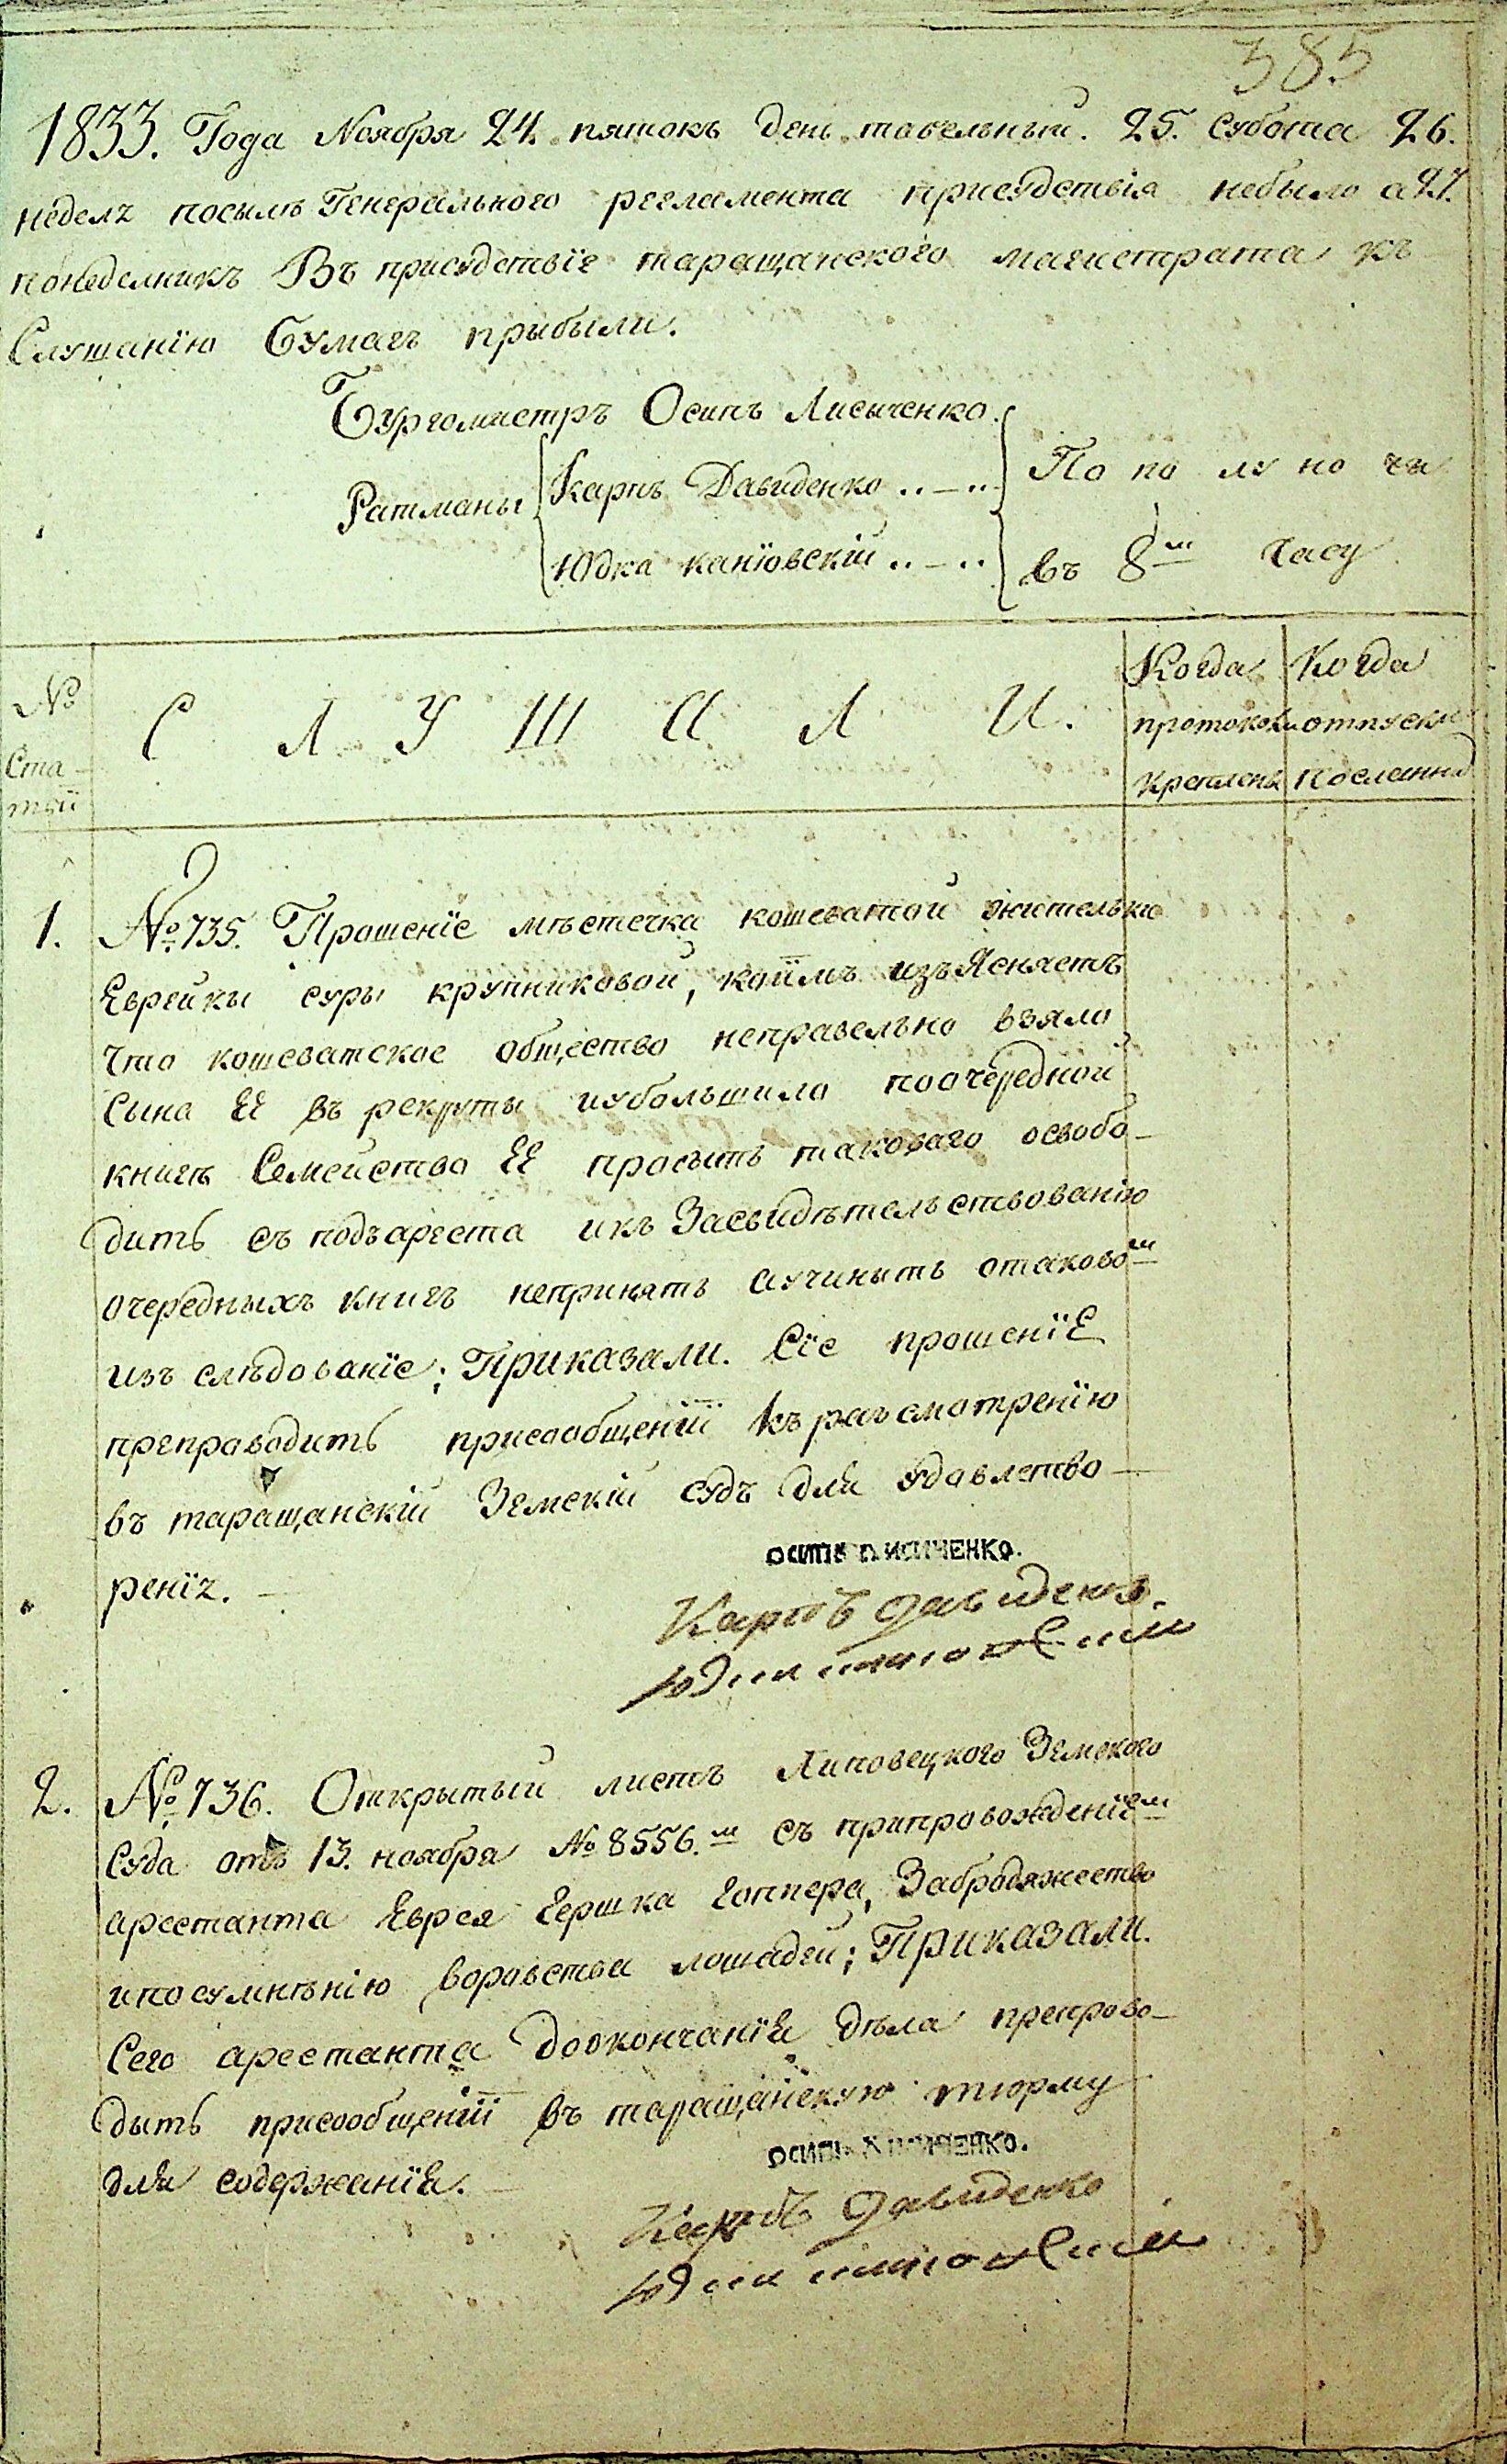 385
1833. Года Ноября 24. пятокъ день табельный. 25. Субота 26.
неделѣ посылѣ Генерального регламента присудствія небыло а 27.
понеделникъ Въ присудствїе таращанского магистрата къ
Слушанїю Бумагъ прибыли.
Бургомистръ Осипъ Лисиченко.
Ратманы Карпъ Давиденко По по лу но чи
Юдка канїовскій въ 8м часу
№ С Л У Ш А Л И. Когда Когда
Ста- протоколы отпуски
тей Крепленъ посланны
1. №735. Прошенїе мѣстечка кошеватой жительки
Еврейки суры крупниковой, коїимъ изъясняетъ
Что кошеватское общество неправельно взяло
Сына ЕЕ въ рекруты иубольшило поочередной
книгѣ Семейство ЕЕ проситъ таковаго освобо-
дить съ подъареста икъ Засвидѣтельствованїю
очередныхъ книгъ непринять аучинить отаковом
изъ слѣдованїе; Приказали. Сїе прошенїЕ
препроводить присообщенїї къ разсмотренїю
въ таращанскій Земскій судъ для удовлетво-
ренїя.
осипъ лисиченко.
Карпъ давиденко.
2. №736. Открытый листъ Липовецкого Земского
Суда отъ 13. ноября №8556.м съ припровожденїЕм
арестанта Еврея Гершка Гоппера, Забродяжество
ипосумнѣнію воровства лошадей; Приказали.
Сего арестанта доокончанїя дѣла препрово-
дыть присообщенїї въ таращанскую тюрму
для содержанїя.
осипъ лисиченко.
Карпъ давиденко